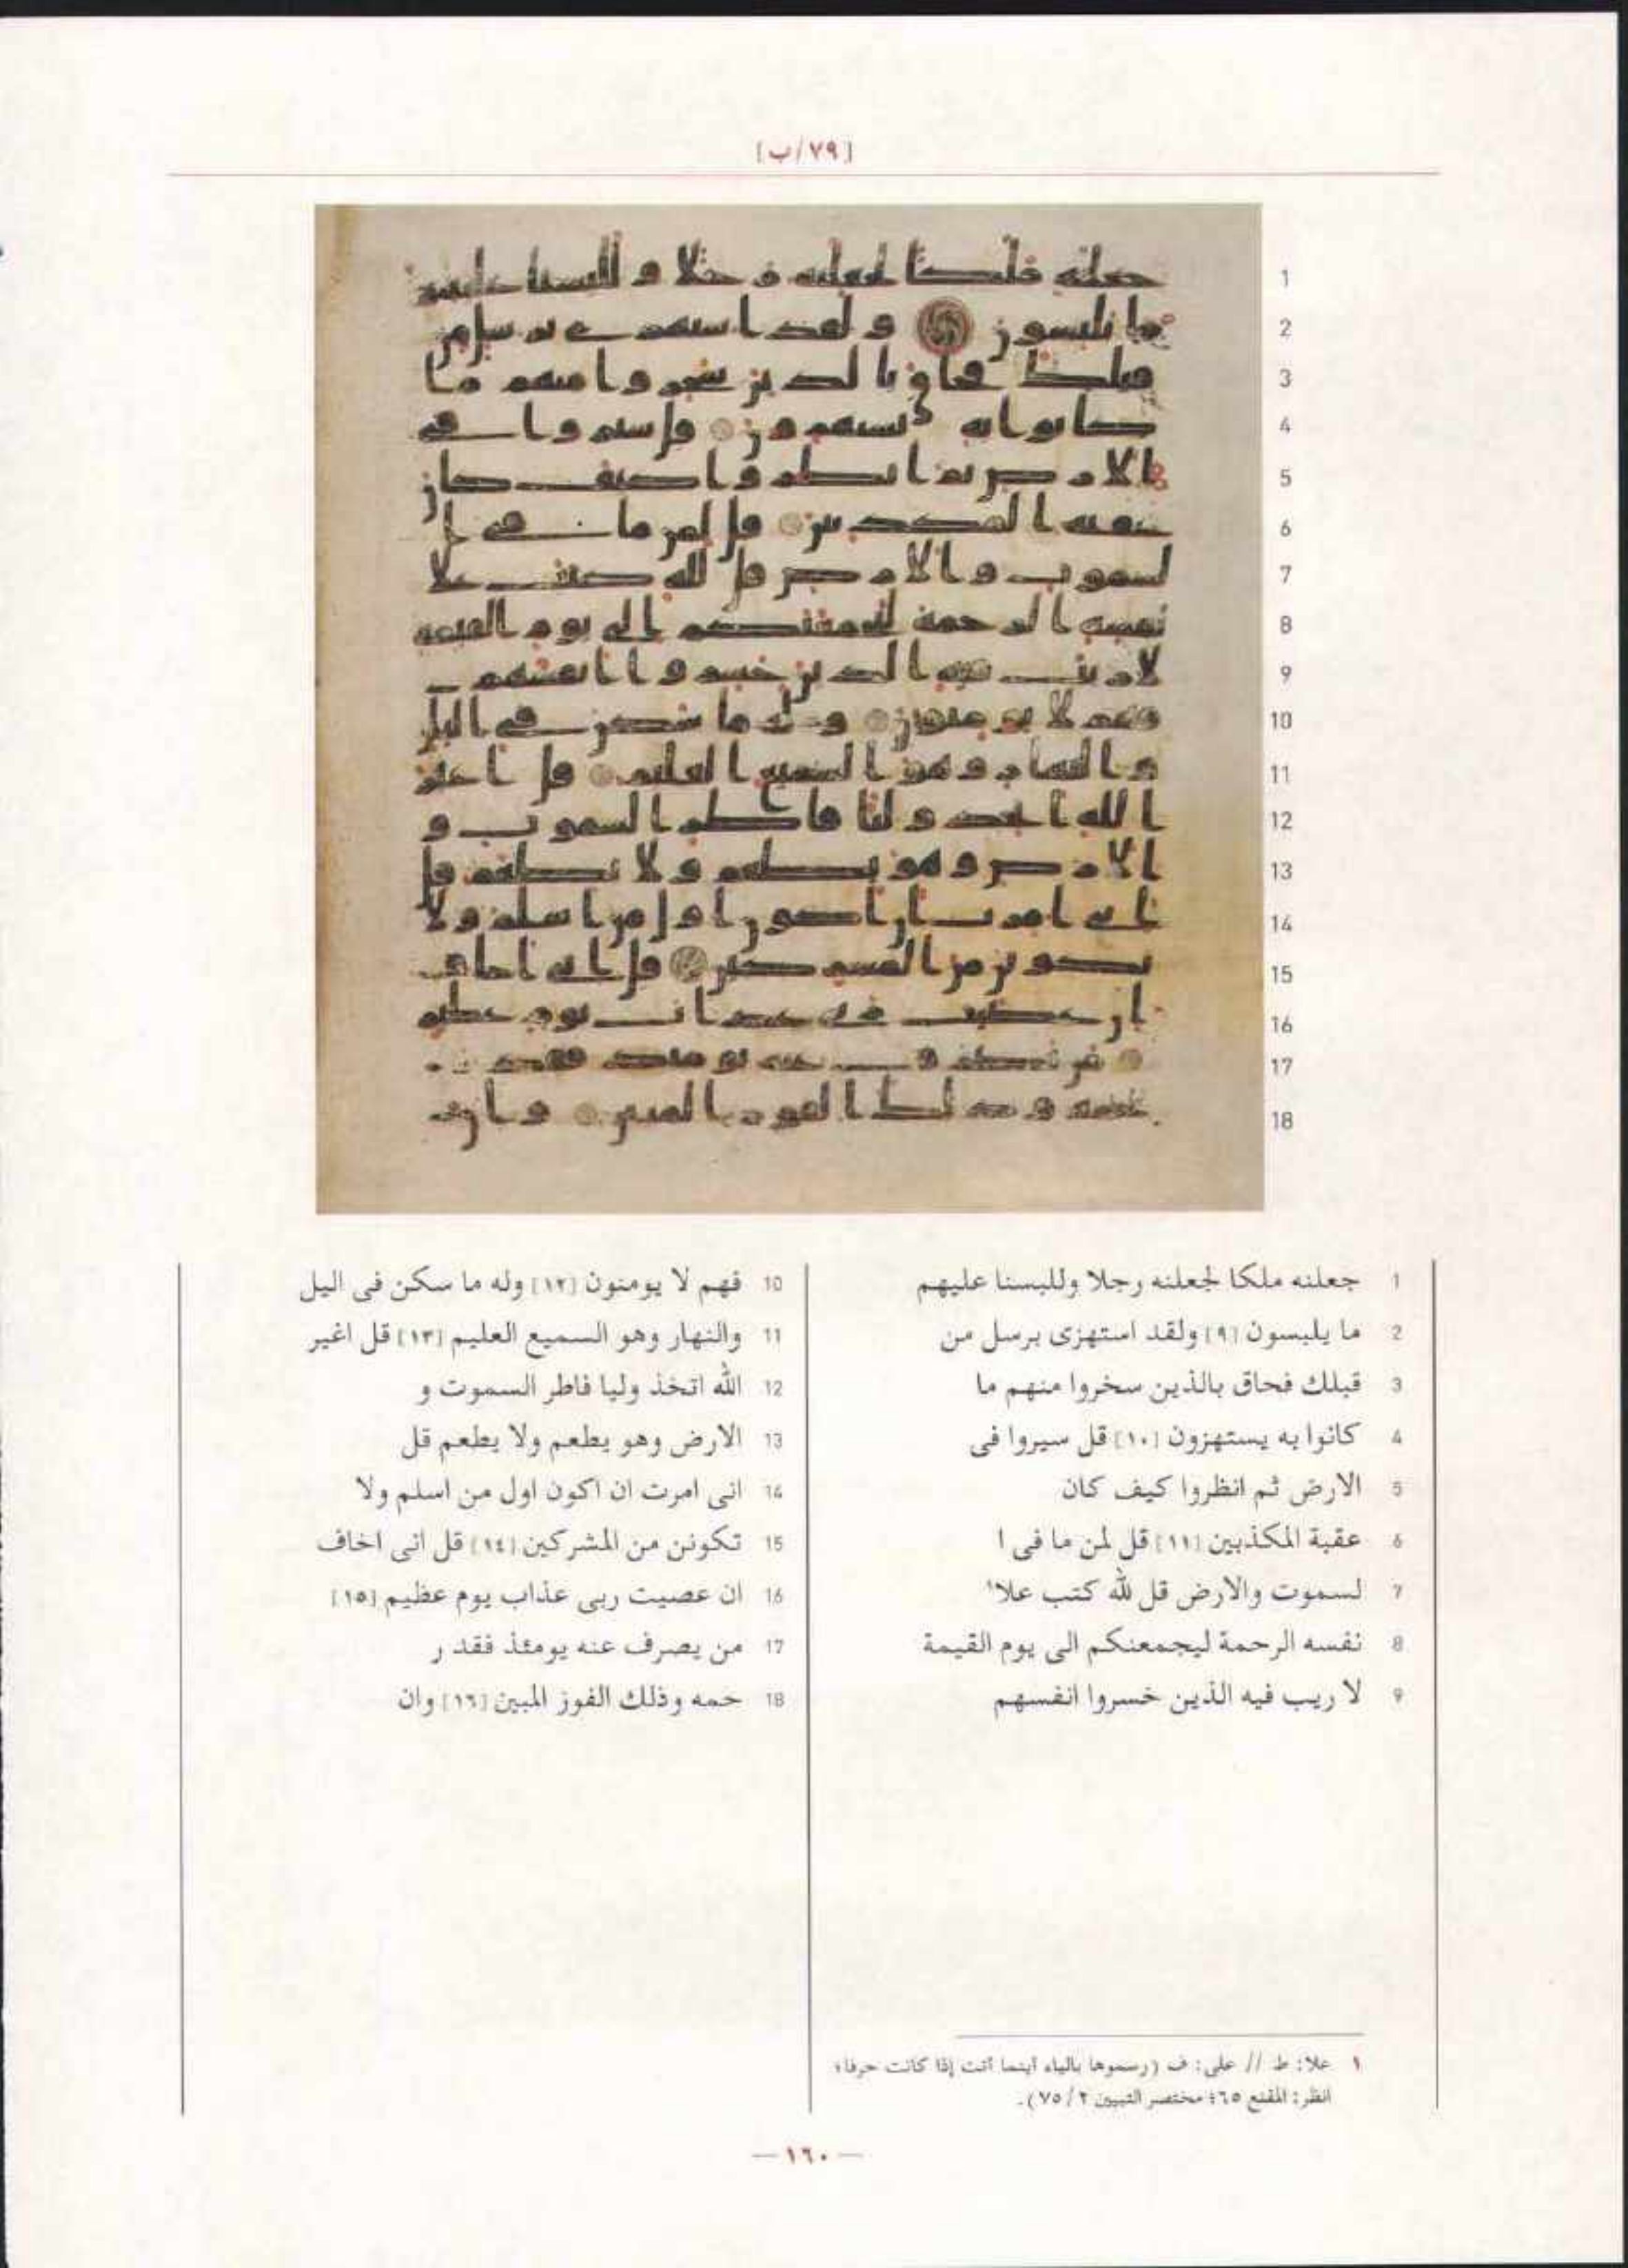 [٧٩/ب]
1 جعلنه ملكا لجعلنه رجلا وللبسنا عليهم
2 ما يلبسون [٩] ولقد استهزى برسل من
3 قبلك فحاق بالذين سخروا منهم ما
4 كانوا به يستهزون [١٠] قل سيروا فى
5 الارض ثم انظروا كيف كان
6 عقبة المكذبين [١١] قل لمن ما فى ا
7 لسموت والارض قل لله كتب علا١
8 نفسه الرحمة ليجمعنكم الى يوم القيمة
9 لا ريب فيه الذين خسروا انفسهم
10 فهم لا يومنون [١٢] وله ما سكن فى اليل
11 والنهار وهو السميع العليم [١٣] قل اغير
12 الله اتخذ وليا فاطر السموت و
13 الارض وهو يطعم ولا يطعم قل
14 انى امرت ان اكون اول من اسلم ولا
15 تكونن من المشركين [١٤] قل انى اخاف
16 ان عصيت ربى عذاب يوم عظيم [١٥]
17 من يصرف عنه يومئذ فقد ر
18 حمه وذلك الفوز المبين [١٦] وان
١ علا: ط // على: ف (رسموها بالياء أينما أتت إذا كانت حرفا؛
انظر: المقنع ٦٥؛ مختصر التبيين ٢/ ٧٥).
— ١٦٠ —